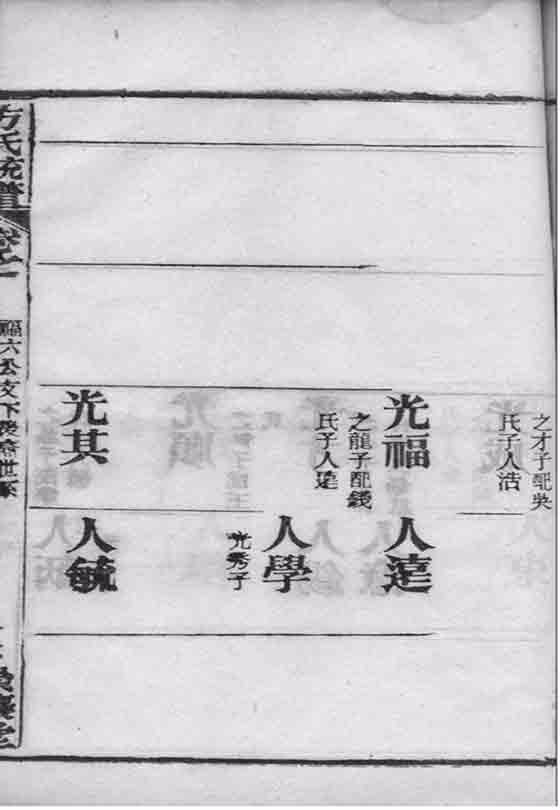 之才子配吳
氏子人浩
光福
之龍子配錢
氏子人達
光其
人達
人學
光秀子
人毓
方氏統譜
卷之一
福六公支下後裔世系